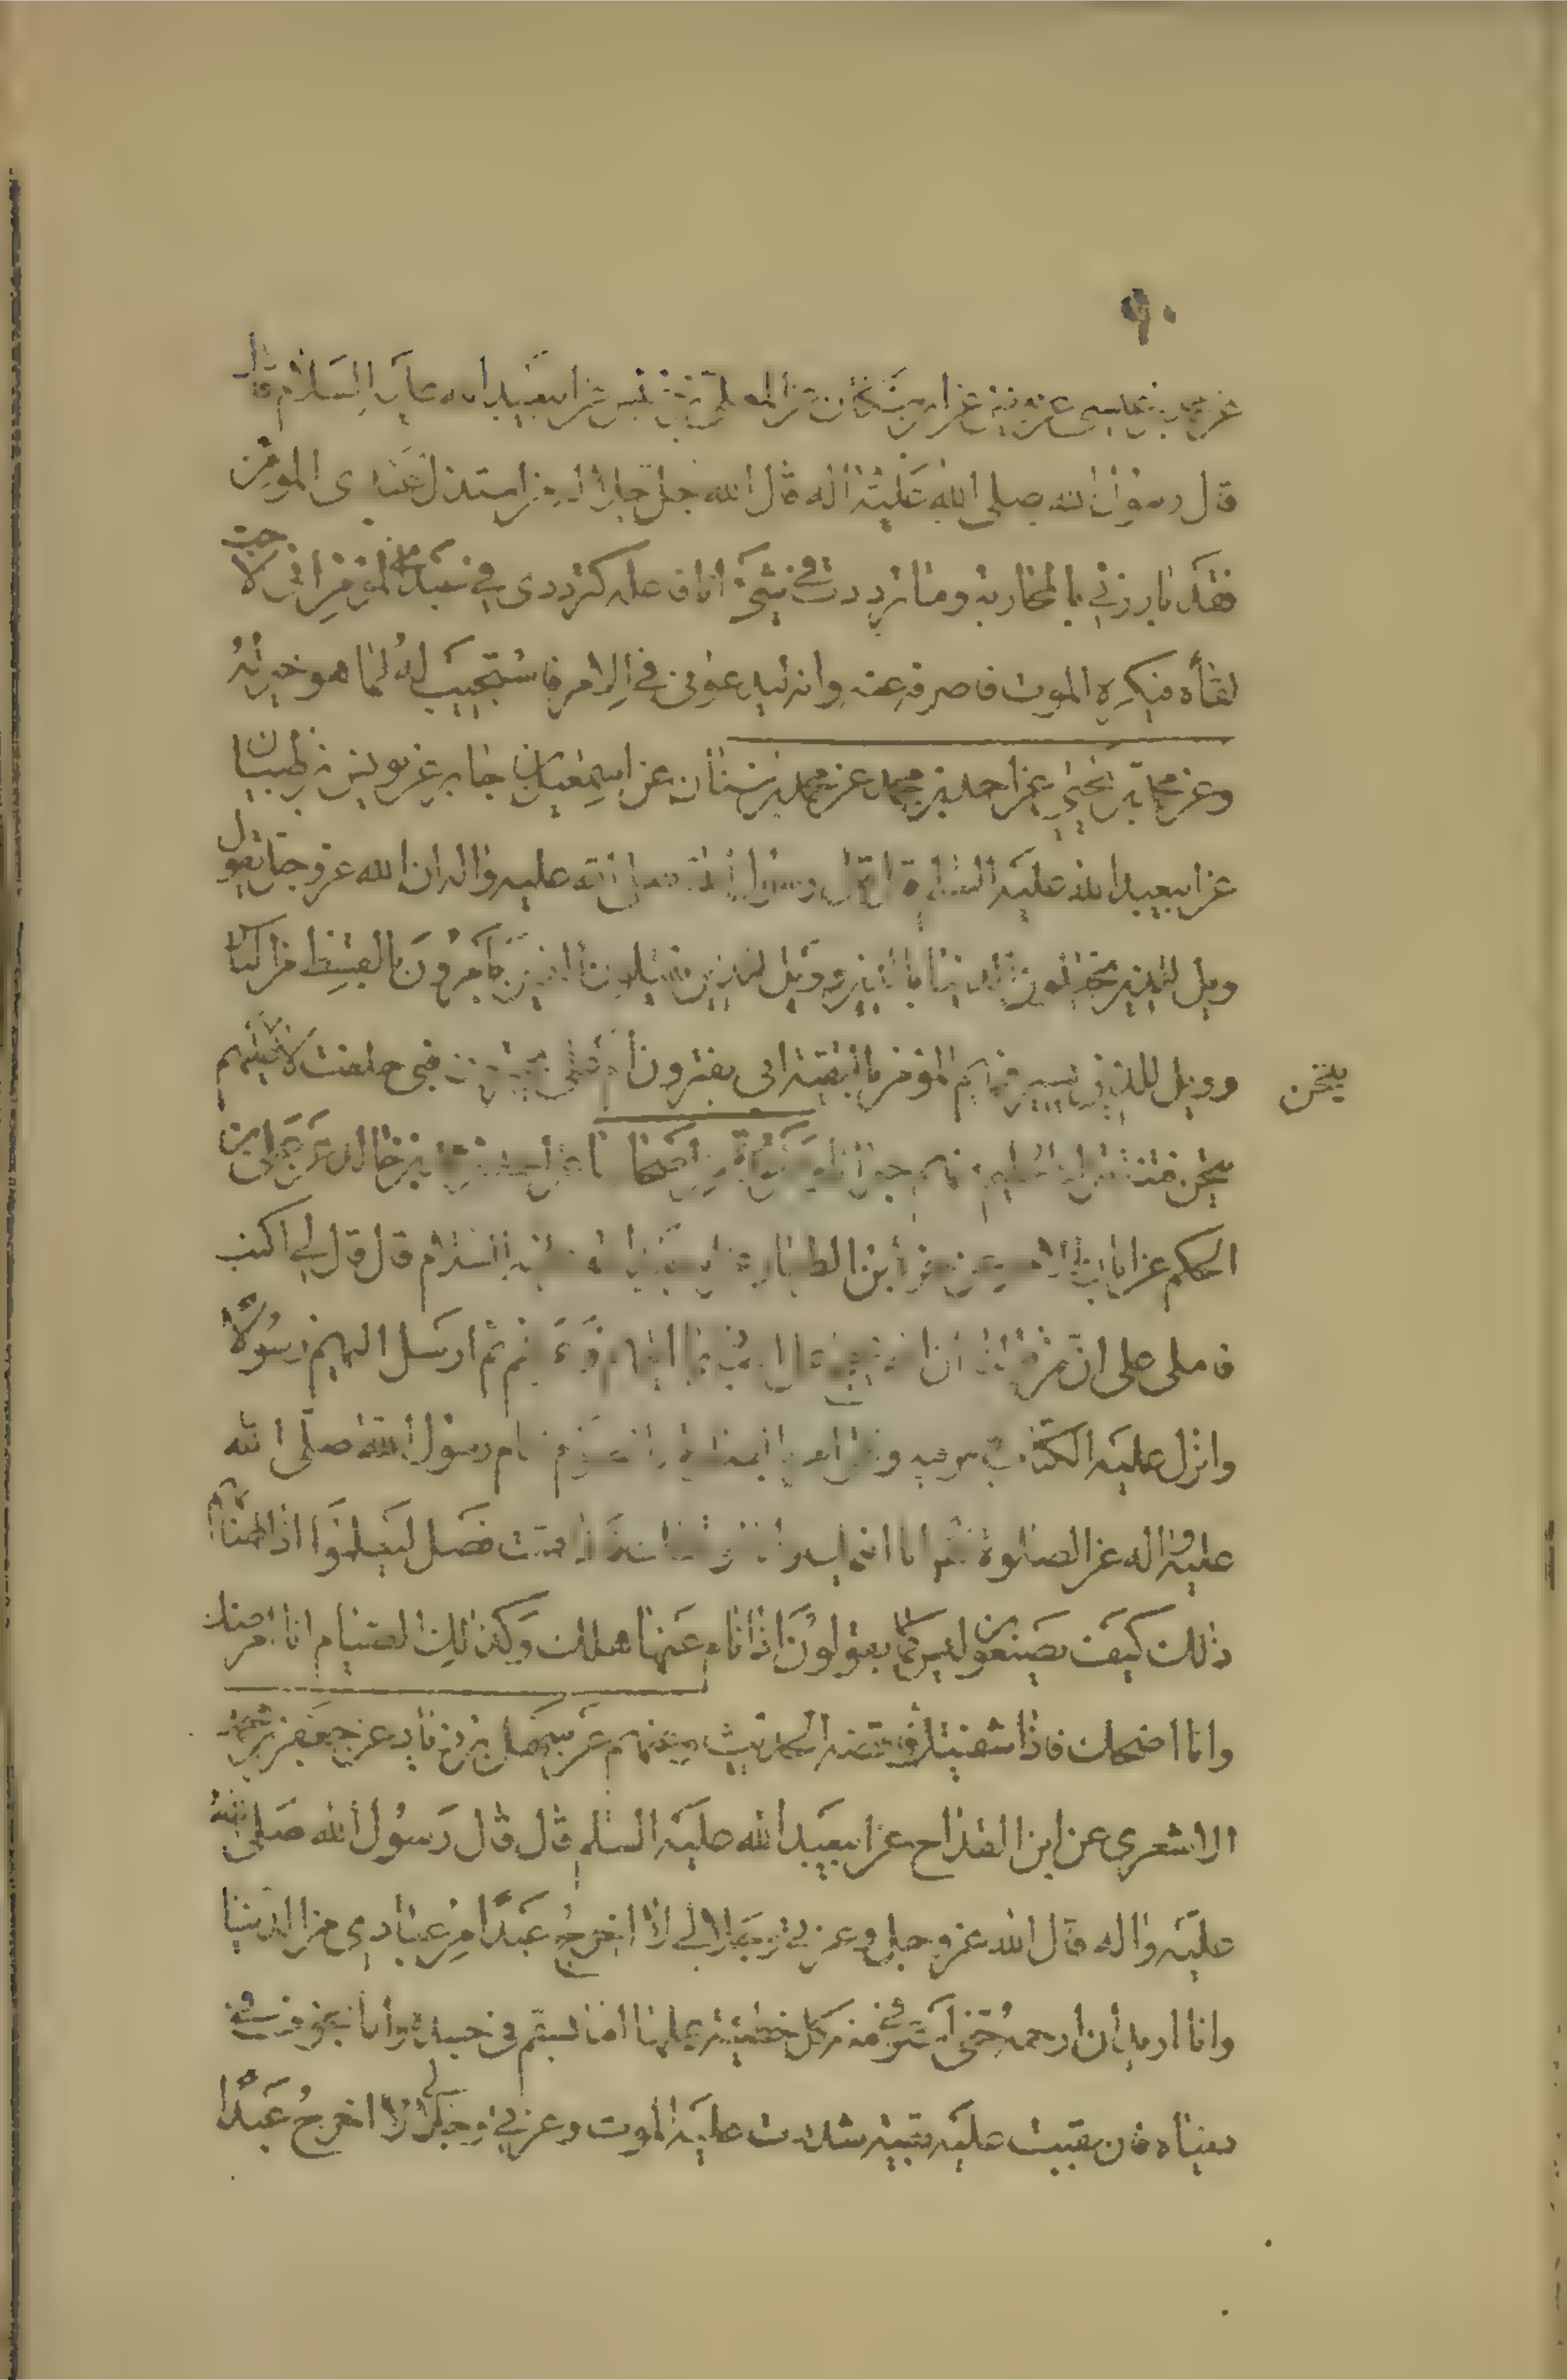 ٩٠
عن محمد بن عيسى عن يونس عن ابن مسكان عن المعلى بن خنيس عن ابيعبد الله عليه السلام قال
قال رسول الله صلى الله عليه واله قال الله جل جلاله من استذل عبدى المومن
فقد بارزني بالمحاربة وما ترددت في شيء انا فاعله كترددى في عبدى المؤمن انى لاحب
لقاءه فيكره الموت فاصرفه عنه وانه ليدعونى في الامر فاستجيب له لما هو خير له
وعن محمد بن يحيى عن احمد بن محمد عن محمد بن سنان عن اسمعيل بن جابر عن يونس بن ظبيان
عن ابيعبد الله عليه السلام قال قال رسول الله صلى الله عليه واله ان الله عز وجل يقول
ويل للذين يختلون الدنيا بالدين وويل للذين يقتلون الذين يأمرون بالقسط من الناس
وويل للذين يسير فيهم المؤمن بالتقية ابى يغترون ام على يجترؤن فبى حلفت لاتيحن لهم
يتحن
فتنة تترك الحليم منهم حيرانا
الحكم عن ابان الاحمر عن ابن الطيار عن ابيعبد الله عليه السلام قال قال لي اكتب
فاملى على ان من قولنا ان الله يحتج على العباد بما اتاهم وعرفهم ثم ارسل اليهم رسولا
وانزل عليهم الكتاب فامر فيه ونهى امر فيه بالصلوة والصوم فنام رسول الله صلى الله
عليه واله عن الصلوة فقال انا انيمك وانا اوقظك فاذا قمت فصل ليعلموا اذا اصابهم
ذلك كيف يصنعون ليس كما يقولون اذا نام عنها هلك وكذلك الصيام انا امرضك
وانا اصحك فاذا شفيتك فاقضه الحديث ومنهم عن سهل بن زياد عن جعفر بن محمد
الاشعرى عن ابن القداح عن ابيعبد الله عليه السلم قال قال رسول الله صلى الله
عليه واله قال الله عز وجل وعزتي وجلالي لا اخرج عبدا من عبادى من الدنيا
وانا اريد أن ارحمه حتى استوفي منه كل خطيئة عملها اما بسقم في جسده واما بخوف في
دنياه فان بقيت عليه بقية شددت عليه الموت وعزتي وجلالي لا اخرج عبدا